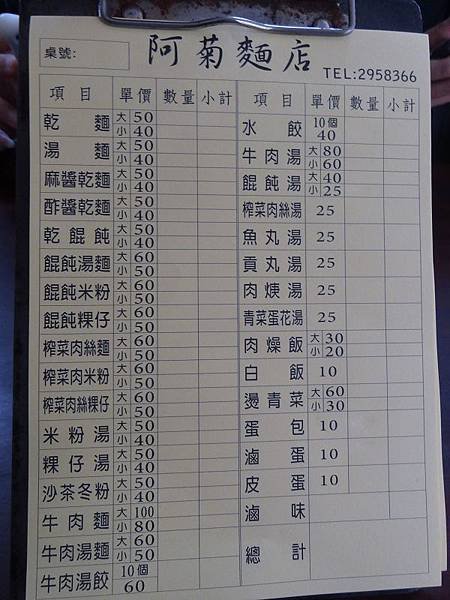 桌號:
阿菊麵店
TEL:2958366
項目 單價 數量 小計
乾麵 大50 小40
湯麵 大50 小40
麻醬乾麵 大50 小40
酢醬乾麵 大50 小40
乾餛飩 大50 小40
餛飩湯麵 大60 小50
餛飩米粉 大60 小50
餛飩粿仔 大60 小50
榨菜肉絲麵 大60 小50
榨菜肉米粉 大60 小50
榨菜肉絲粿仔 大60 小50
米粉湯 大50 小40
粿仔湯 大50 小40
沙茶冬粉 大50 小40
牛肉麵 大100 小80
牛肉湯麵 大60 小50
牛肉湯餃 10個 60
項目 單價 數量 小計
水餃 10個 40
牛肉湯 大80 小60
餛飩湯 大40 小25
榨菜肉絲湯 25
魚丸湯 25
貢丸湯 25
肉焿湯 25
青菜蛋花湯 25
肉燥飯 大30 小20
白飯 10
燙青菜 大60 小30
蛋包 10
滷蛋 10
皮蛋 10
滷味
總計